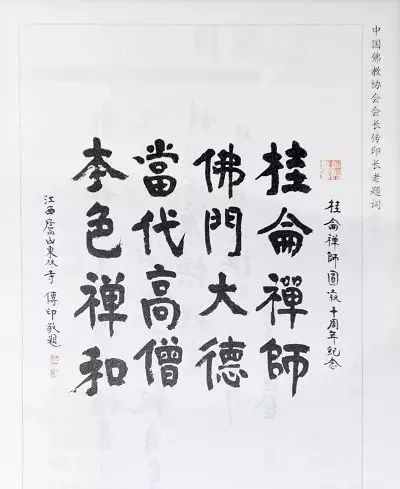 中国佛教协会会长传印长老题词
桂侖禪師圓寂十周年紀念
桂侖禪師
佛門大德
當代高僧
本色禅和
江西廬山東林寺 傳印敬題